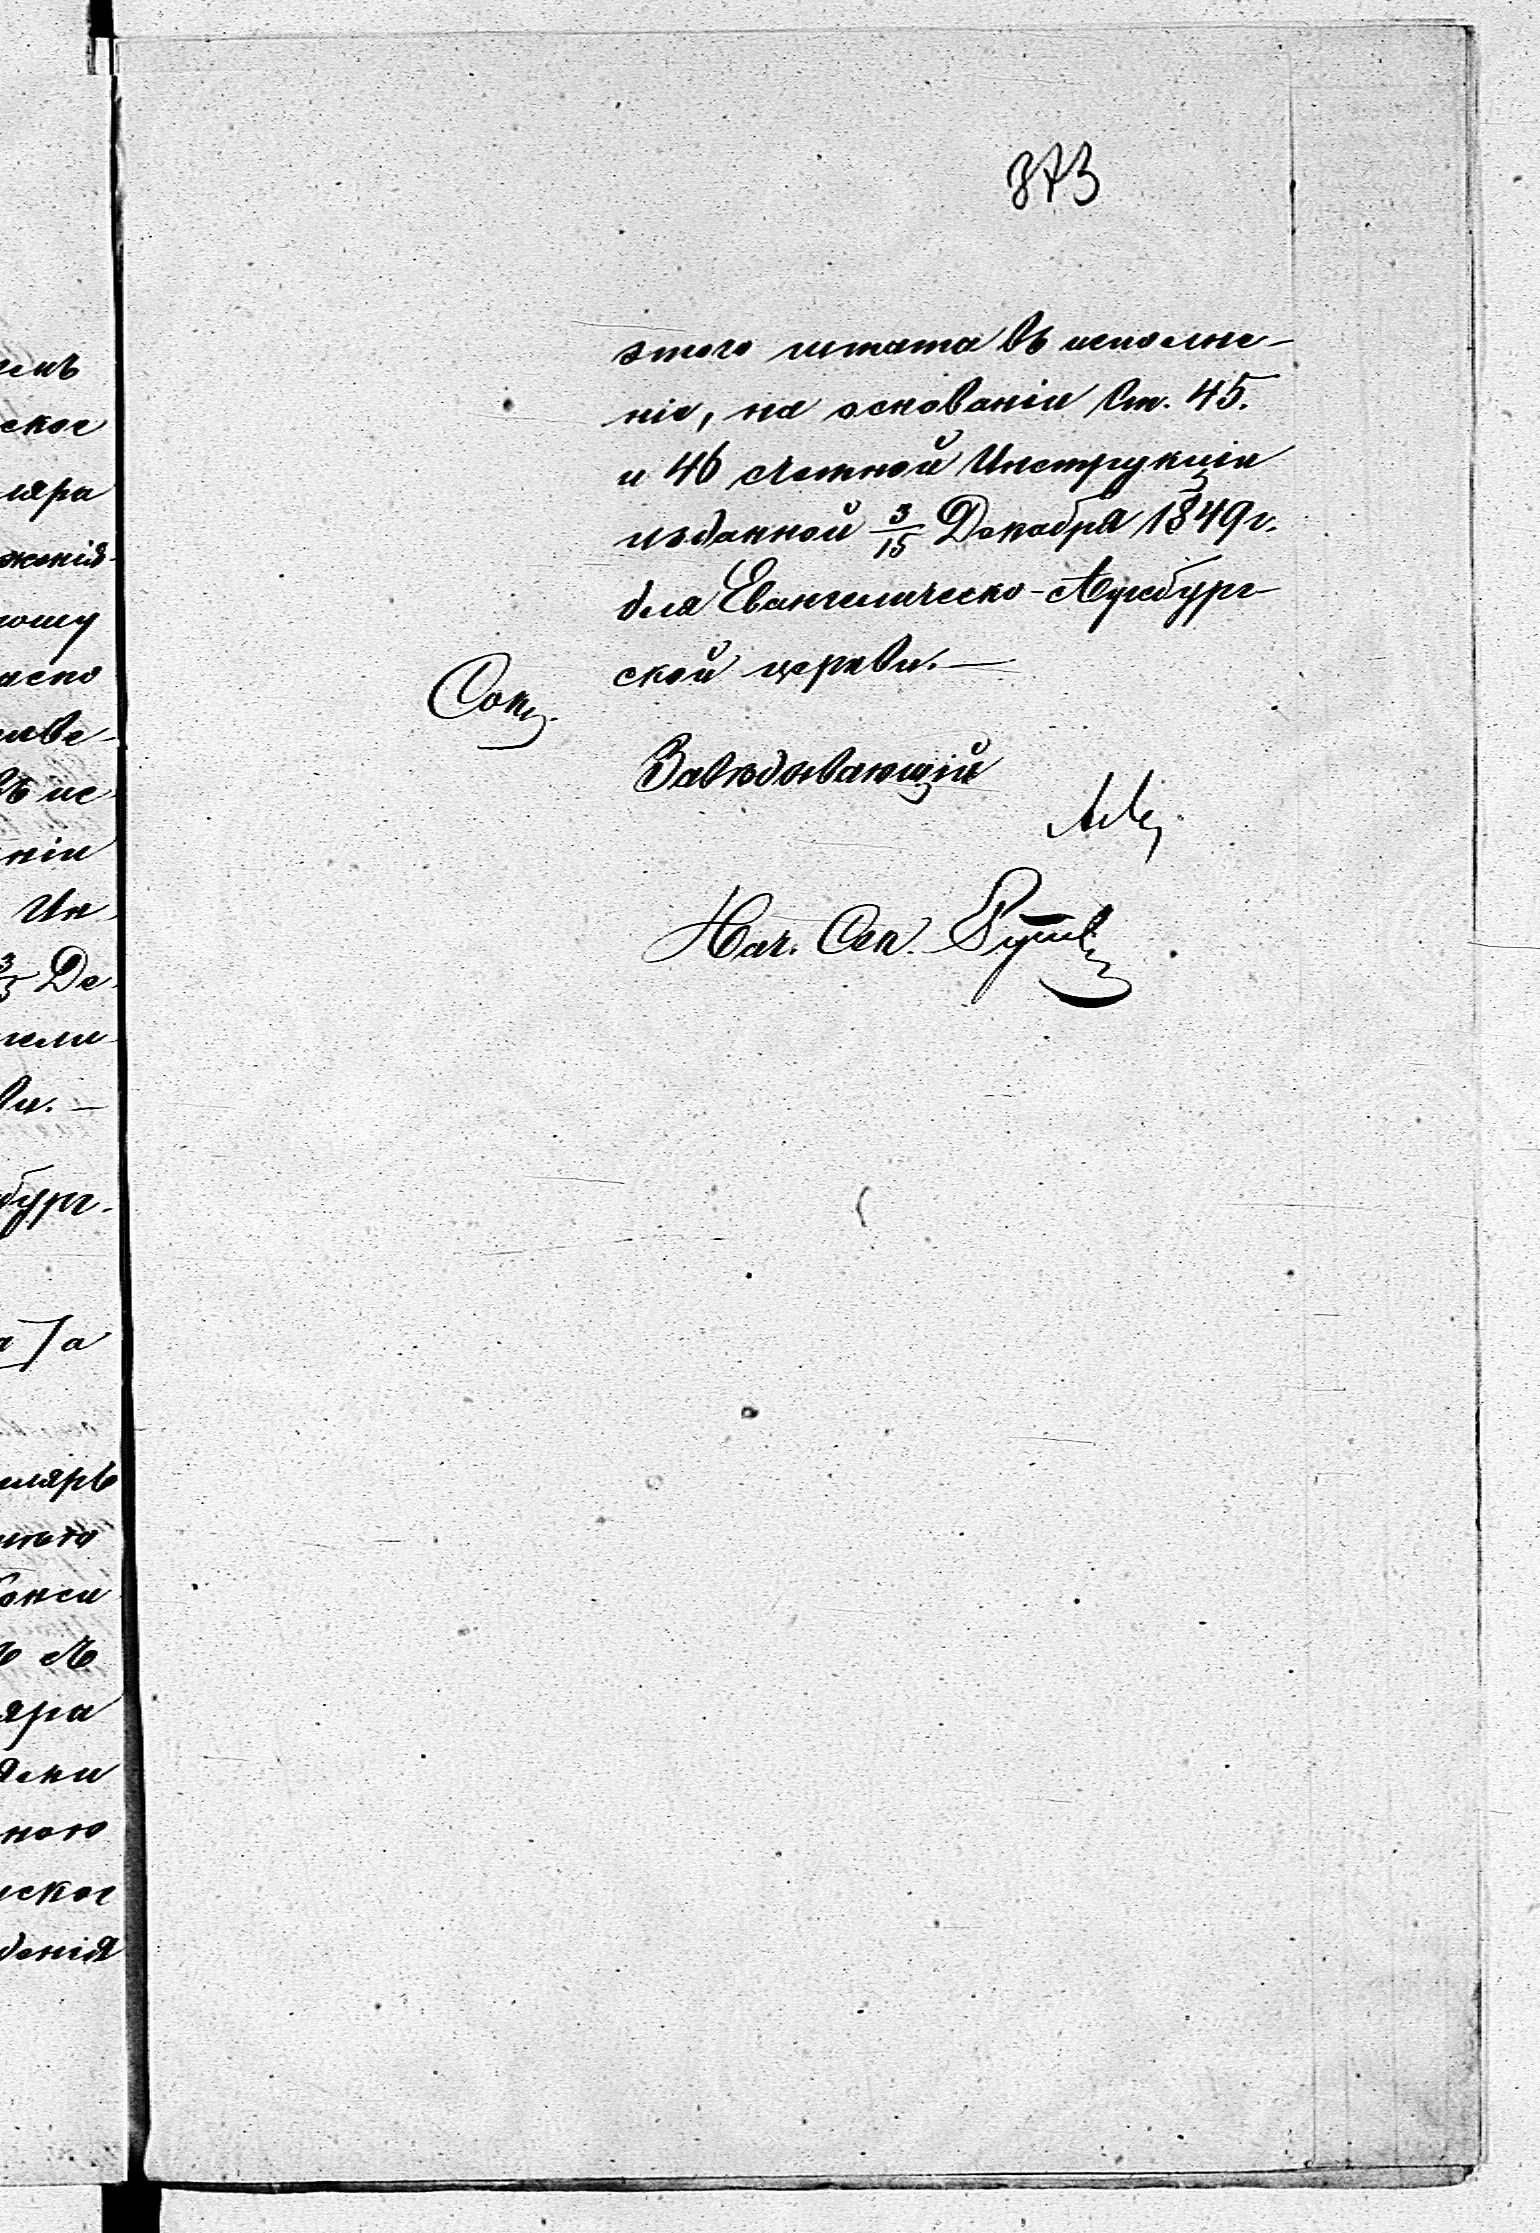 373
этого штата въ исполне-
ніе, на основаніи Ст. 45.
и 46 счетной Инструкціи
изданной 3/15 Декабря 1849 г.
для Евангелическо-Аугсбург-
ской церкви. —
Завѣдывающій
Нач. Сек.
емъ
ское
ляра
женія
ному
ве-
въ ис
ніи
Ин
3/15 Де
гели
ви. —
бург.
ляръ
Конси
яра
ною
ског
денія